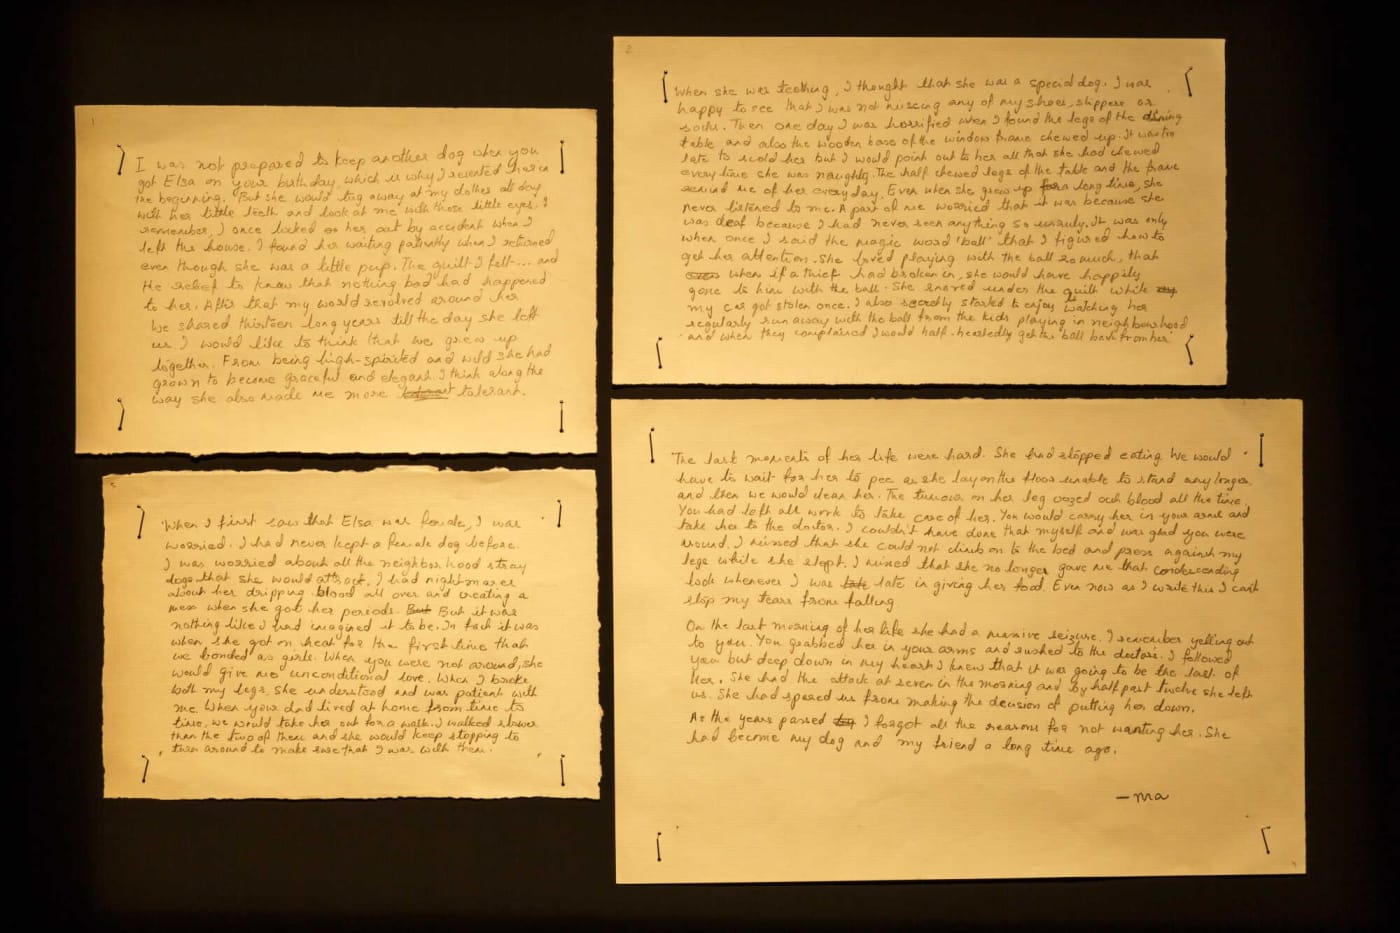 1
I was not prepared to keep another dog when you
got Elsa on your birthday, which is why I resented her in
the beginning. But she would tug away at my clothes all day
with her little teeth and look at me with those little eyes. I
remember, I once locked her out by accident when I
left the house. I found her waiting patiently when I returned
even though she was a little pup. The guilt I felt.... and
the relief to know that nothing bad had happened
to her. After that my world revolved around her
We shared thirteen long years till the day she left
us. I would like to think that we grew up
together. From being high-spirited and wild she had
grown to become graceful and elegant. I think along the
way she also made me more tolerant.
2
When she was teething, I thought that she was a special dog. I was
happy to see that I was not missing any of my shoes, slippers or
socks. Then one day I was horrified when I found the legs of the dining
table and also the wooden base of the window frame chewed up. It was too
late to scold her but I would point out to her all that she had chewed
every time she was naughty. The half chewed legs of the table and the frame
remind me of her everyday. Even when she grew up for a long time, she
never listened to me. A part of me worried that it was because she
was deaf because I had never seen anything so unruly. It was only
when once I said the magic word 'ball' that I figured how to
get her attention. She loved playing with the ball so much, that
even when if a thief had broken in, she would have happily
gone to him with the ball. She snored under the quilt while
my car got stolen once. I also secretly started to enjoy watching her
regularly run away with the ball from the kids playing in neighbourhood
and when they complained I would half-heartedly get the ball back from her
When I first saw that Elsa was female, I was
worried. I had never kept a female dog before.
I was worried about all the neighborhood stray
dogs that she would attract. I had nightmares
about her dripping blood all over and creating a
mess when she got her periods. But But it was
nothing like I had imagined it to be. In fact it was
when she got on heat for the first time that
we bonded as girls. When you were not around, she
would give me unconditional love. When I broke
both my legs, she understood and was patient with
me. When your dad lived at home from time to
time, we would take her out for a walk. I walked slower
than the two of them and she would keep stopping to
turn around to make sure that I was with them.
The last moments of her life were hard. She had stopped eating. We would
have to wait for her to pee as she lay on the floor unable to stand any longer
and then we would clean her. The tumour on her leg oozed out blood all the time.
You had left all work to take care of her. You would carry her in your arms and
take her to the doctor. I couldn't have done that myself and was glad you were
around. I missed that she could not climb on to the bed and press against my
legs while she slept. I missed that she no longer gave me that condescending
look whenever I was late late in giving her food. Even now as I write this I can't
stop my tears from falling.
On the last morning of her life she had a massive seizure. I remember yelling out
to you. You grabbed her in your arms and rushed to the doctors. I followed
you but deep down in my heart I knew that it was going to be the last of
her. She had the attack at seven in the morning and by half past twelve she left
us. She had spared us from making the decision of putting her down.
As the years passed I forgot all the reasons for not wanting her. She
had become my dog and my friend a long time ago.
— ma